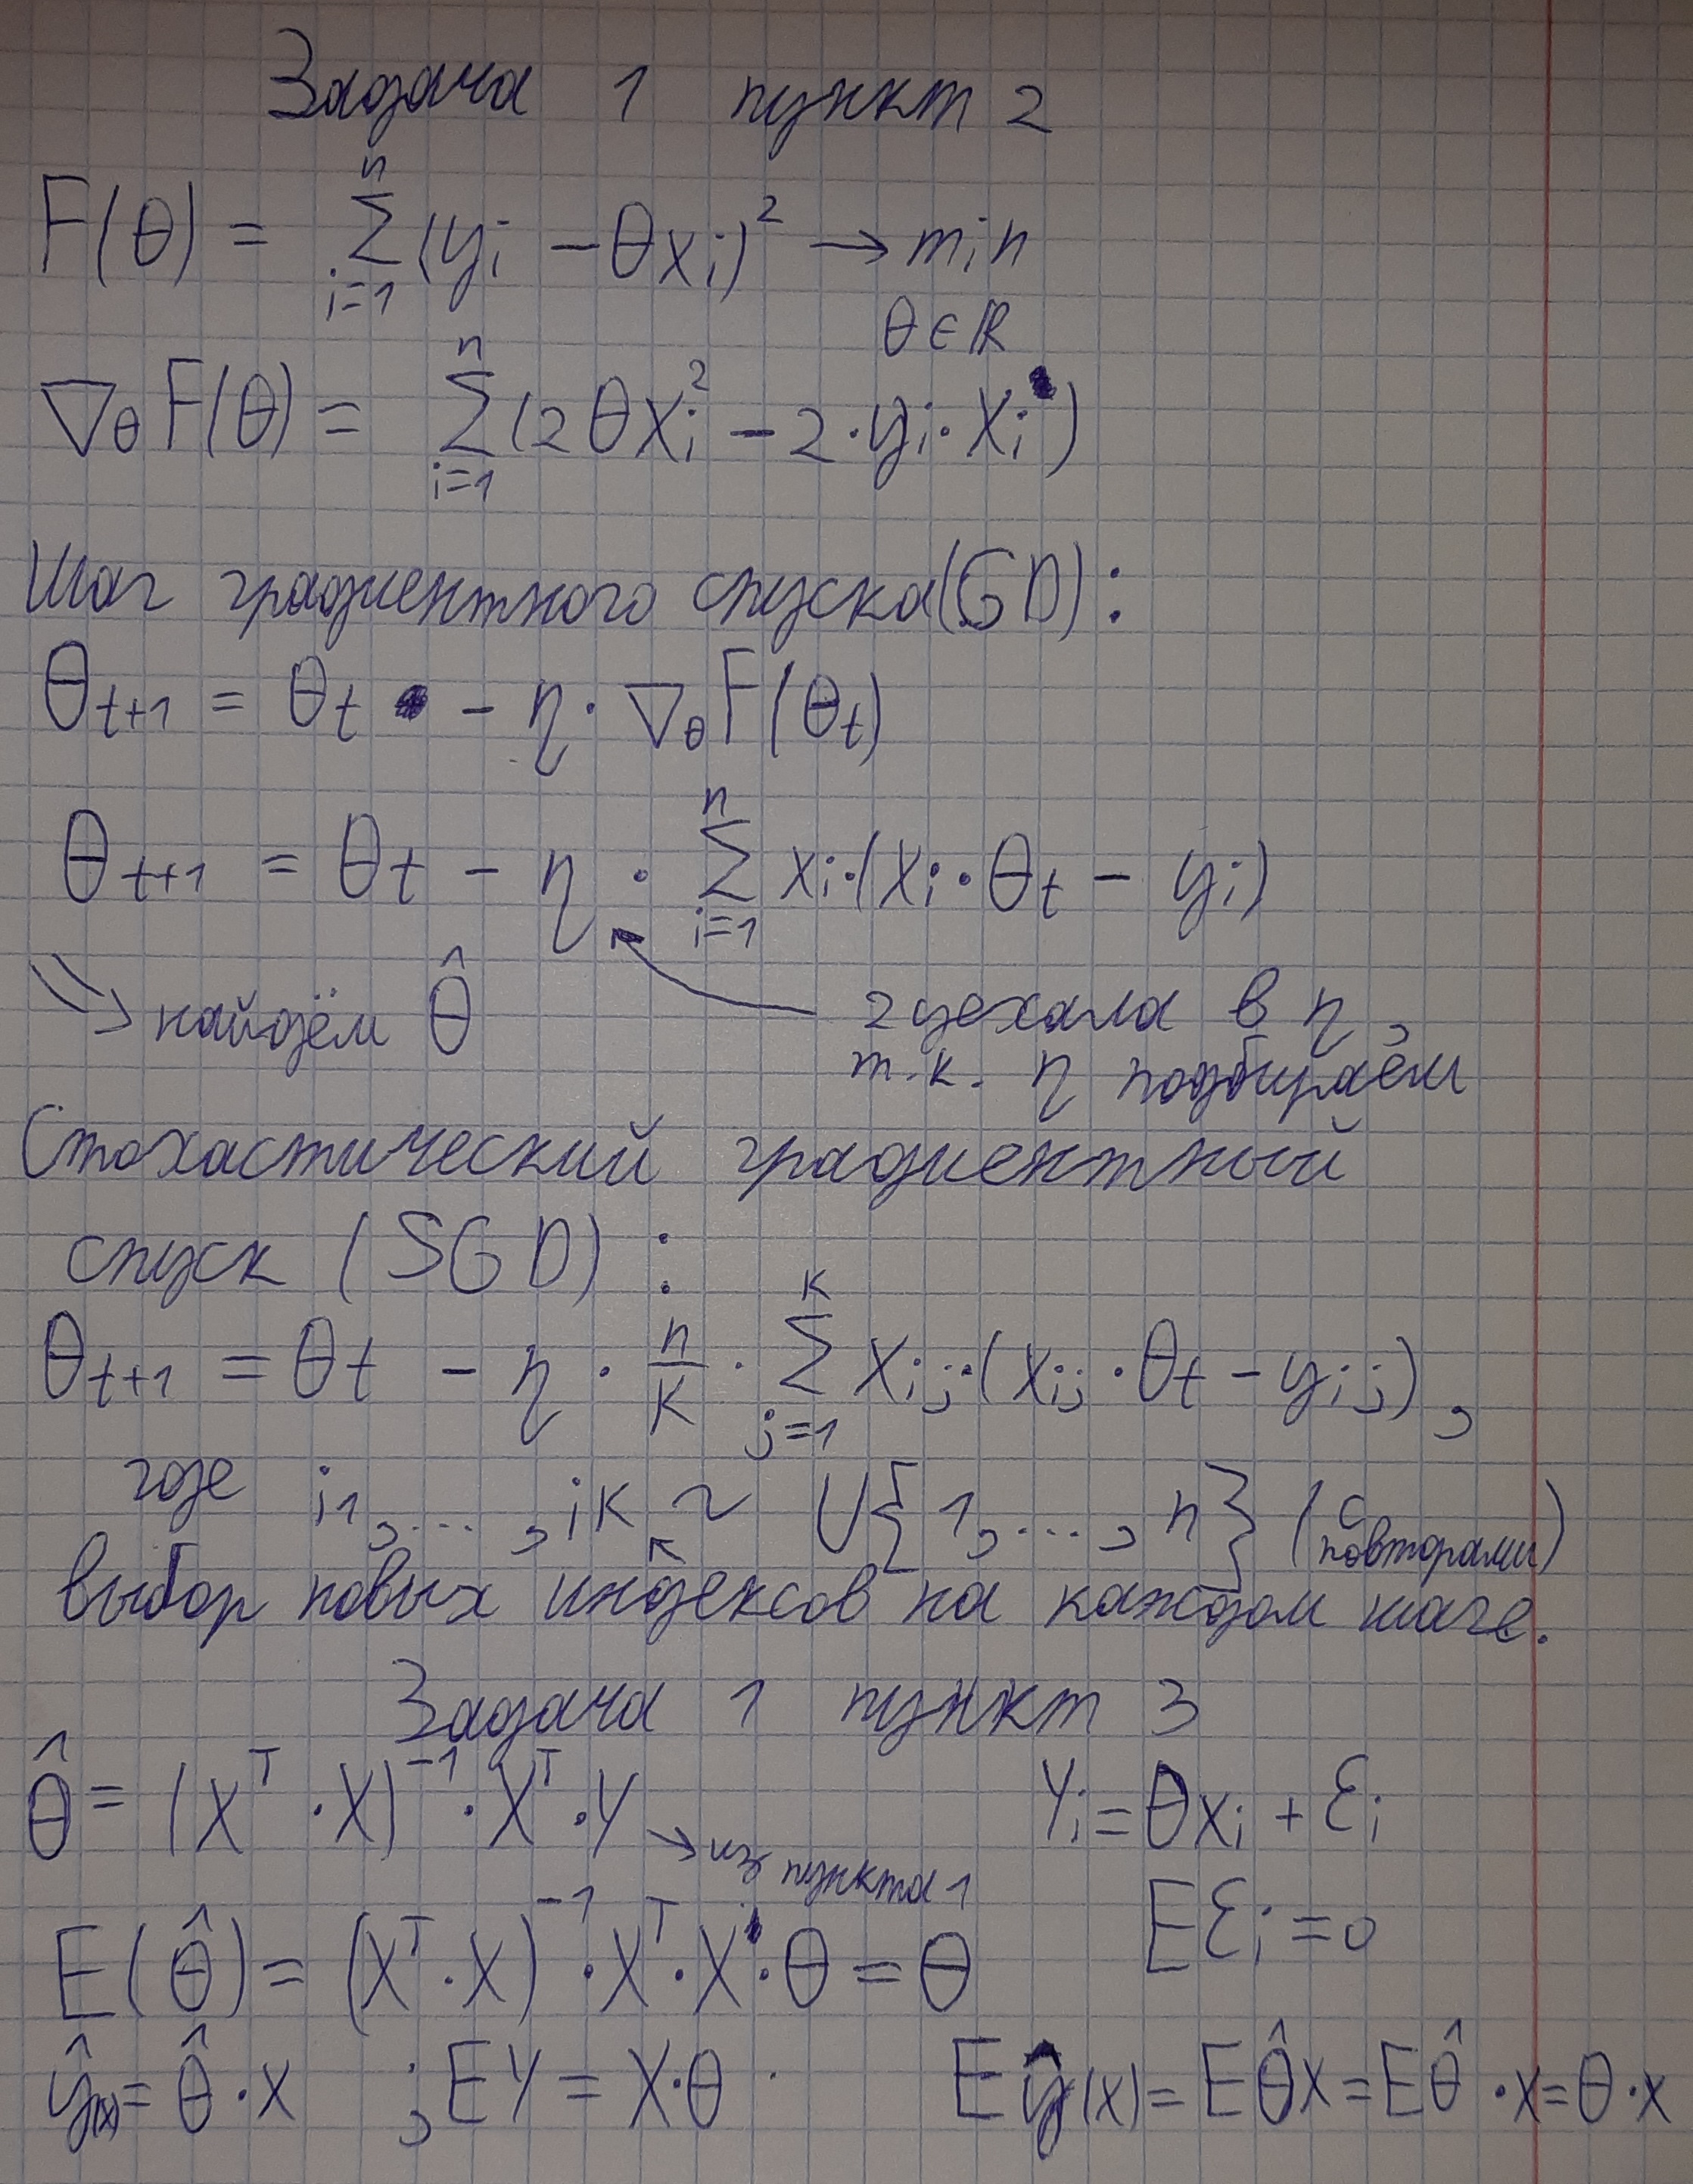 Задача 1 пункт 2
F(θ) = Σ_{i=1}^{n} (y_i − θx_i)² → min_{θ∈ℝ}
∇_θ F(θ) = Σ_{i=1}^{n} (2θx_i² − 2·y_i·x_i)
Шаг градиентного спуска (GD):
θ_{t+1} = θ_t − η · ∇_θ F(θ_t)
θ_{t+1} = θ_t − η · Σ_{i=1}^{n} x_i·(x_i·θ_t − y_i)
⇒ найдём θ̂
2 уехала в η,
т.к. η подбираем
Стохастический градиентный
спуск (SGD):
θ_{t+1} = θ_t − η · n/K · Σ_{j=1}^{K} x_{i_j}·(x_{i_j}·θ_t − y_{i_j}),
где i_1, ..., i_K ~ U{1, ..., n} (с повторами)
выбор новых индексов на каждом шаге.
Задача 1 пункт 3
θ̂ = (X^T · X)^{−1} · X^T · Y → из пункта 1
Y_i = θx_i + ε_i
E(θ̂) = (X^T · X)^{−1} · X^T · X · θ = θ
Eε_i = 0
ŷ(x) = θ̂ · x ; EY = X·θ
Eŷ(x) = Eθ̂x = Eθ̂ · x = θ · x